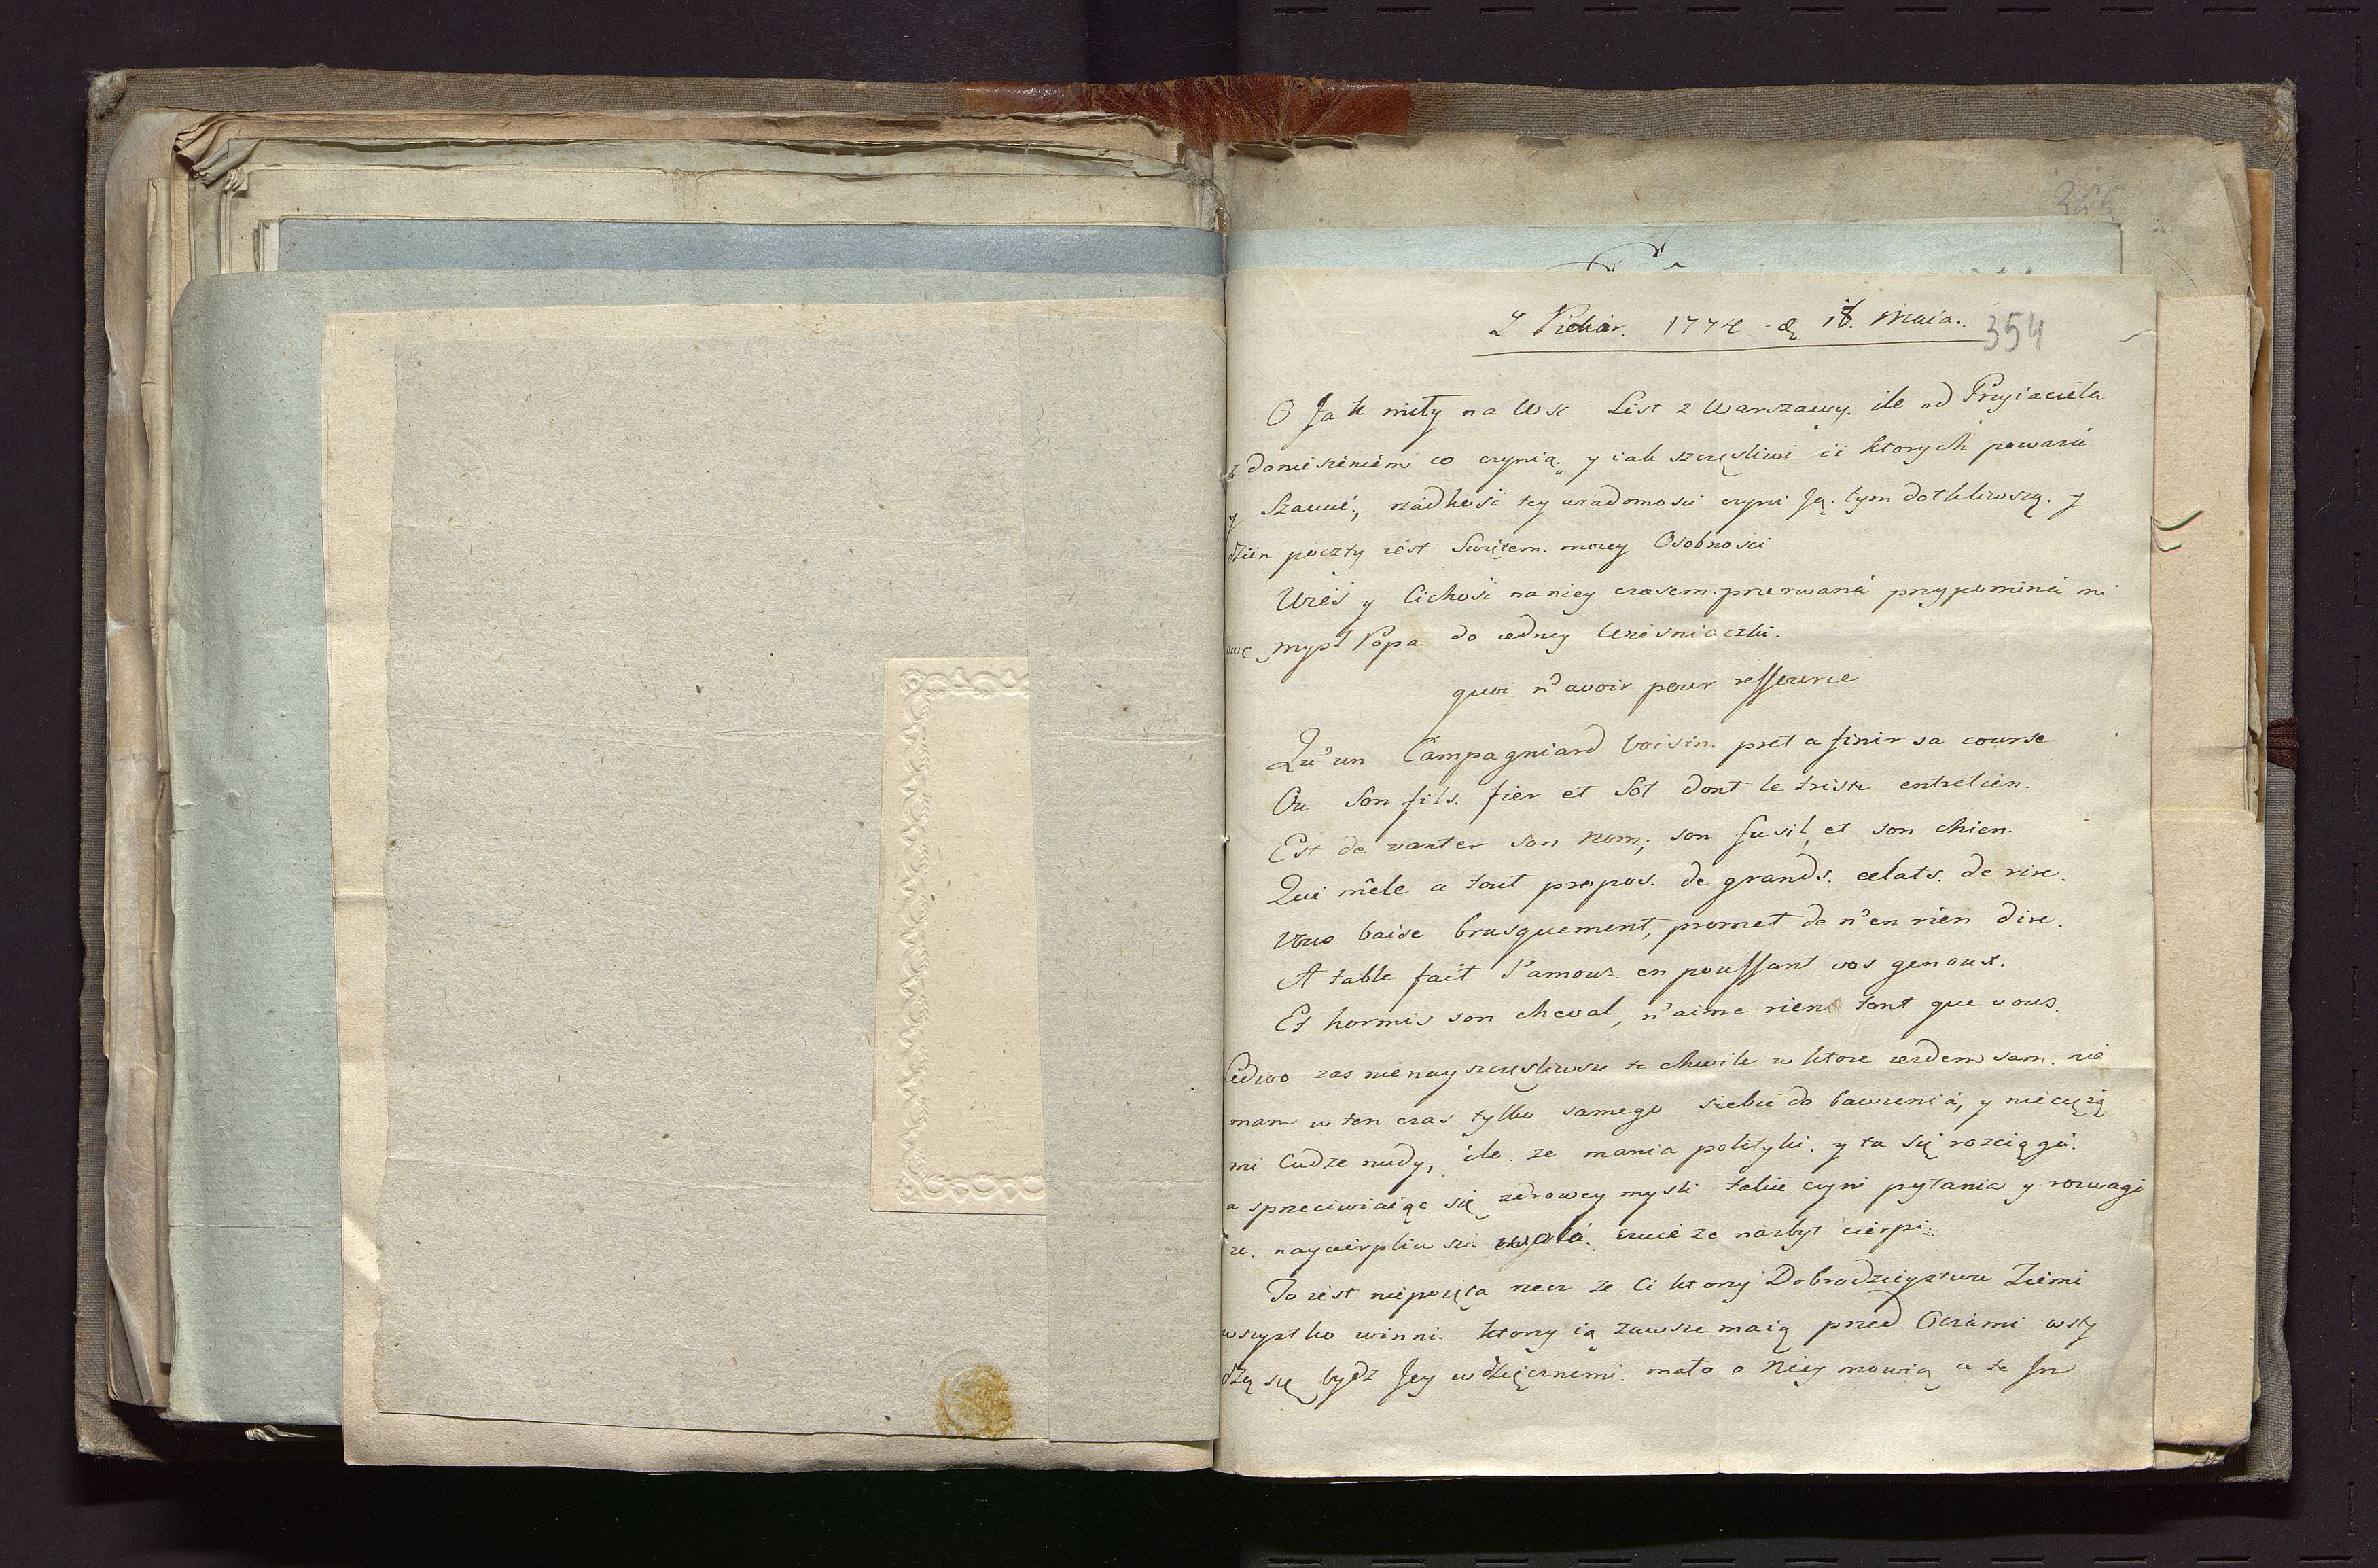 366
Z Piekar. 1774 d. 18. Maia.
354
O Jak miły na Wsi List z Warszawy. ile od Przyiaciela
z doniesieniem co czynią. y iak szczęsliwi ci ktorych powaza
y Szacuie, rzadkość tey wiadomosci czyni Ją. tym dotkliwszą. y
dzien poczty iest Swiętem. moiey Osobnosci
Wies y Cichość na niey czasem. przerwana przypomina mi
owę mysl Popa. do iedney Wiesniaczki.
quoi n'avoir pour ressource
Qu'un Campagniard voisin. pret a finir sa course
Ou Son fils. fier et Sot dont le triste entretien.
Est de vanter son nom; son fusil, et son chien.
Qui mêle a tout propos. de grands. eclats. de rire.
Vous baise brusquement, promet de n'en rien dire.
A table fait l'amour en poussant vos genoux.
Et hormis son cheval, n'aime rien tant que vous.
Ledwo zas nie nayszczęsliwsze te chwile w ktore iezdem sam. nie
mam w ten czas tylko samego siebie do bawienia, y nieciążą
mi Cudze nudy, ile. ze mania polityki. y tu się rozciąga.
a sprzeciwiaiąc się zdrowey mysli takie czyni pytania y rozwagi
ze. naycierpliwsza czuie ze nazbyt cierpi.
To iest niepoięta rzecz że Ci ktorzy Dobrodzieystwu Ziemi
wszystko winni. ktorzy ią zawsze maią przed Oczami wsty
dzą się bydz Jey wdzięcznemi. mało o Niey mowią a te Jm